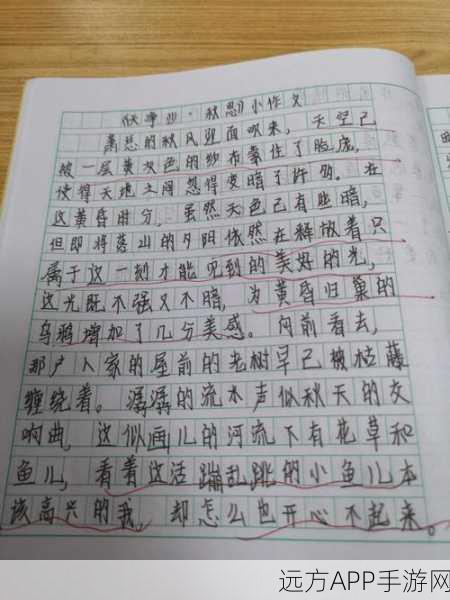 《天净沙·秋思》小作文
萧瑟的秋风迎面吹来，天空已
被一层黄灰色的纱布蒙住了脸庞，
使得天地之间忽得变暗了许多。在
这黄昏时分，虽然天色已有些暗，
但即将落山的夕阳依然在释放着只
属于这一刻才能见到的美好的光，
这光既不强又不暗，为黄昏归巢的
乌鸦增加了几分美感。向前看去，
那户人家的屋前的老树早已被枯藤
缠绕着。潺潺的流水声似秋天的交
响曲，这似画儿的河流下有花草和
鱼儿，看着这活蹦乱跳的小鱼儿本
该高兴的我，却怎么也开心不起来。
远方APP手游网